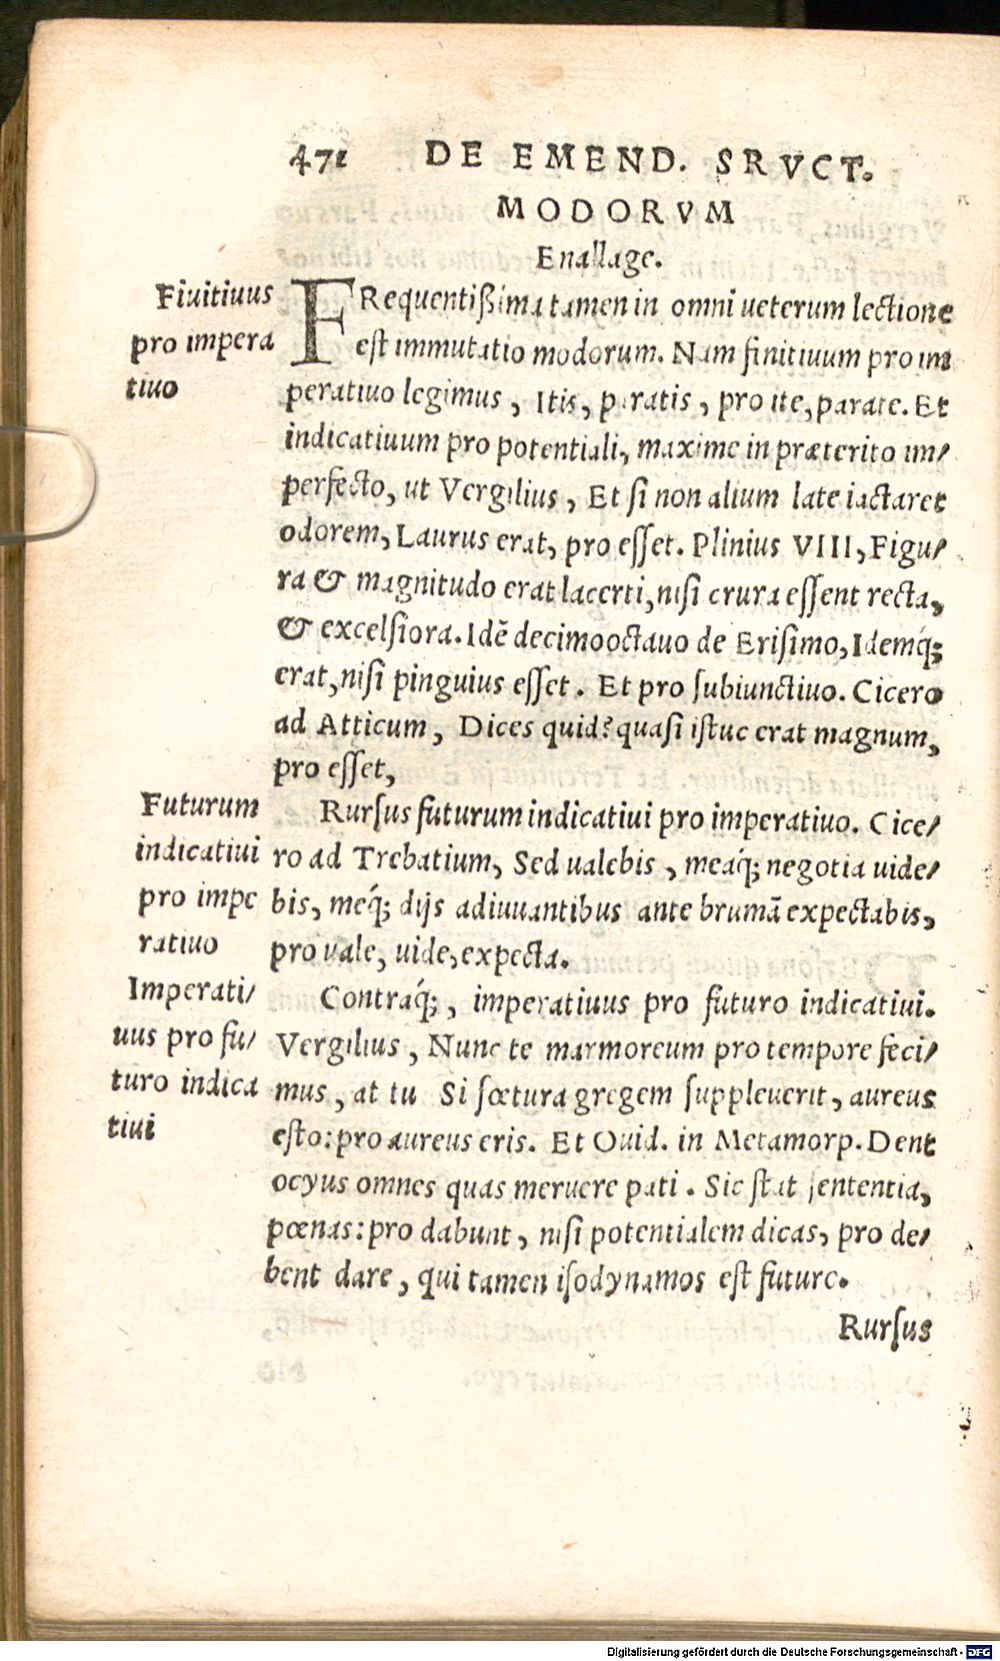 471 DE EMEND. SRVCT.
MODORVM
Enallage.
Fiuitiuus
pro impera
tiuo
FRequentißima tamen in omni ueterum lectione
est immutatio modorum. Nam finitiuum pro im
peratiuo legimus, Itis, paratis, pro ite, parate. Et
indicatiuum pro potentiali, maxime in præterito im/
perfecto, ut Vergilius, Et si non alium late iactaret
odorem, Laurus erat, pro esset. Plinius VIII, Figu/
ra & magnitudo erat lacerti, nisi crura essent recta,
& excelsiora. Idē decimooctauo de Erisimo, Idemq́;
erat, nisi pinguius esset. Et pro subiunctiuo. Cicero
ad Atticum, Dices quid? quasi istuc erat magnum,
pro esset,
Futurum
indicatiui
pro impe
ratiuo
Rursus futurum indicatiui pro imperatiuo. Cice/
ro ad Trebatium, Sed ualebis, meaq́; negotia uide/
bis, meq́; dijs adiuuantibus ante brumā expectabis,
pro uale, uide, expecta.
Imperati/
uus pro fu/
turo indica
tiui
Contraq́;, imperatiuus pro futuro indicatiui.
Vergilius, Nunc te marmoreum pro tempore feci/
mus, at tu Si fœtura gregem suppleuerit, aureus
esto: pro aureus eris. Et Ouid. in Metamorp. Dent
ocyus omnes quas meruere pati. Sic stat sententia,
pœnas: pro dabunt, nisi potentialem dicas, pro de/
bent dare, qui tamen isodynamos est futuro.
Rursus
Digitalisierung gefördert durch die Deutsche Forschungsgemeinschaft - DFG